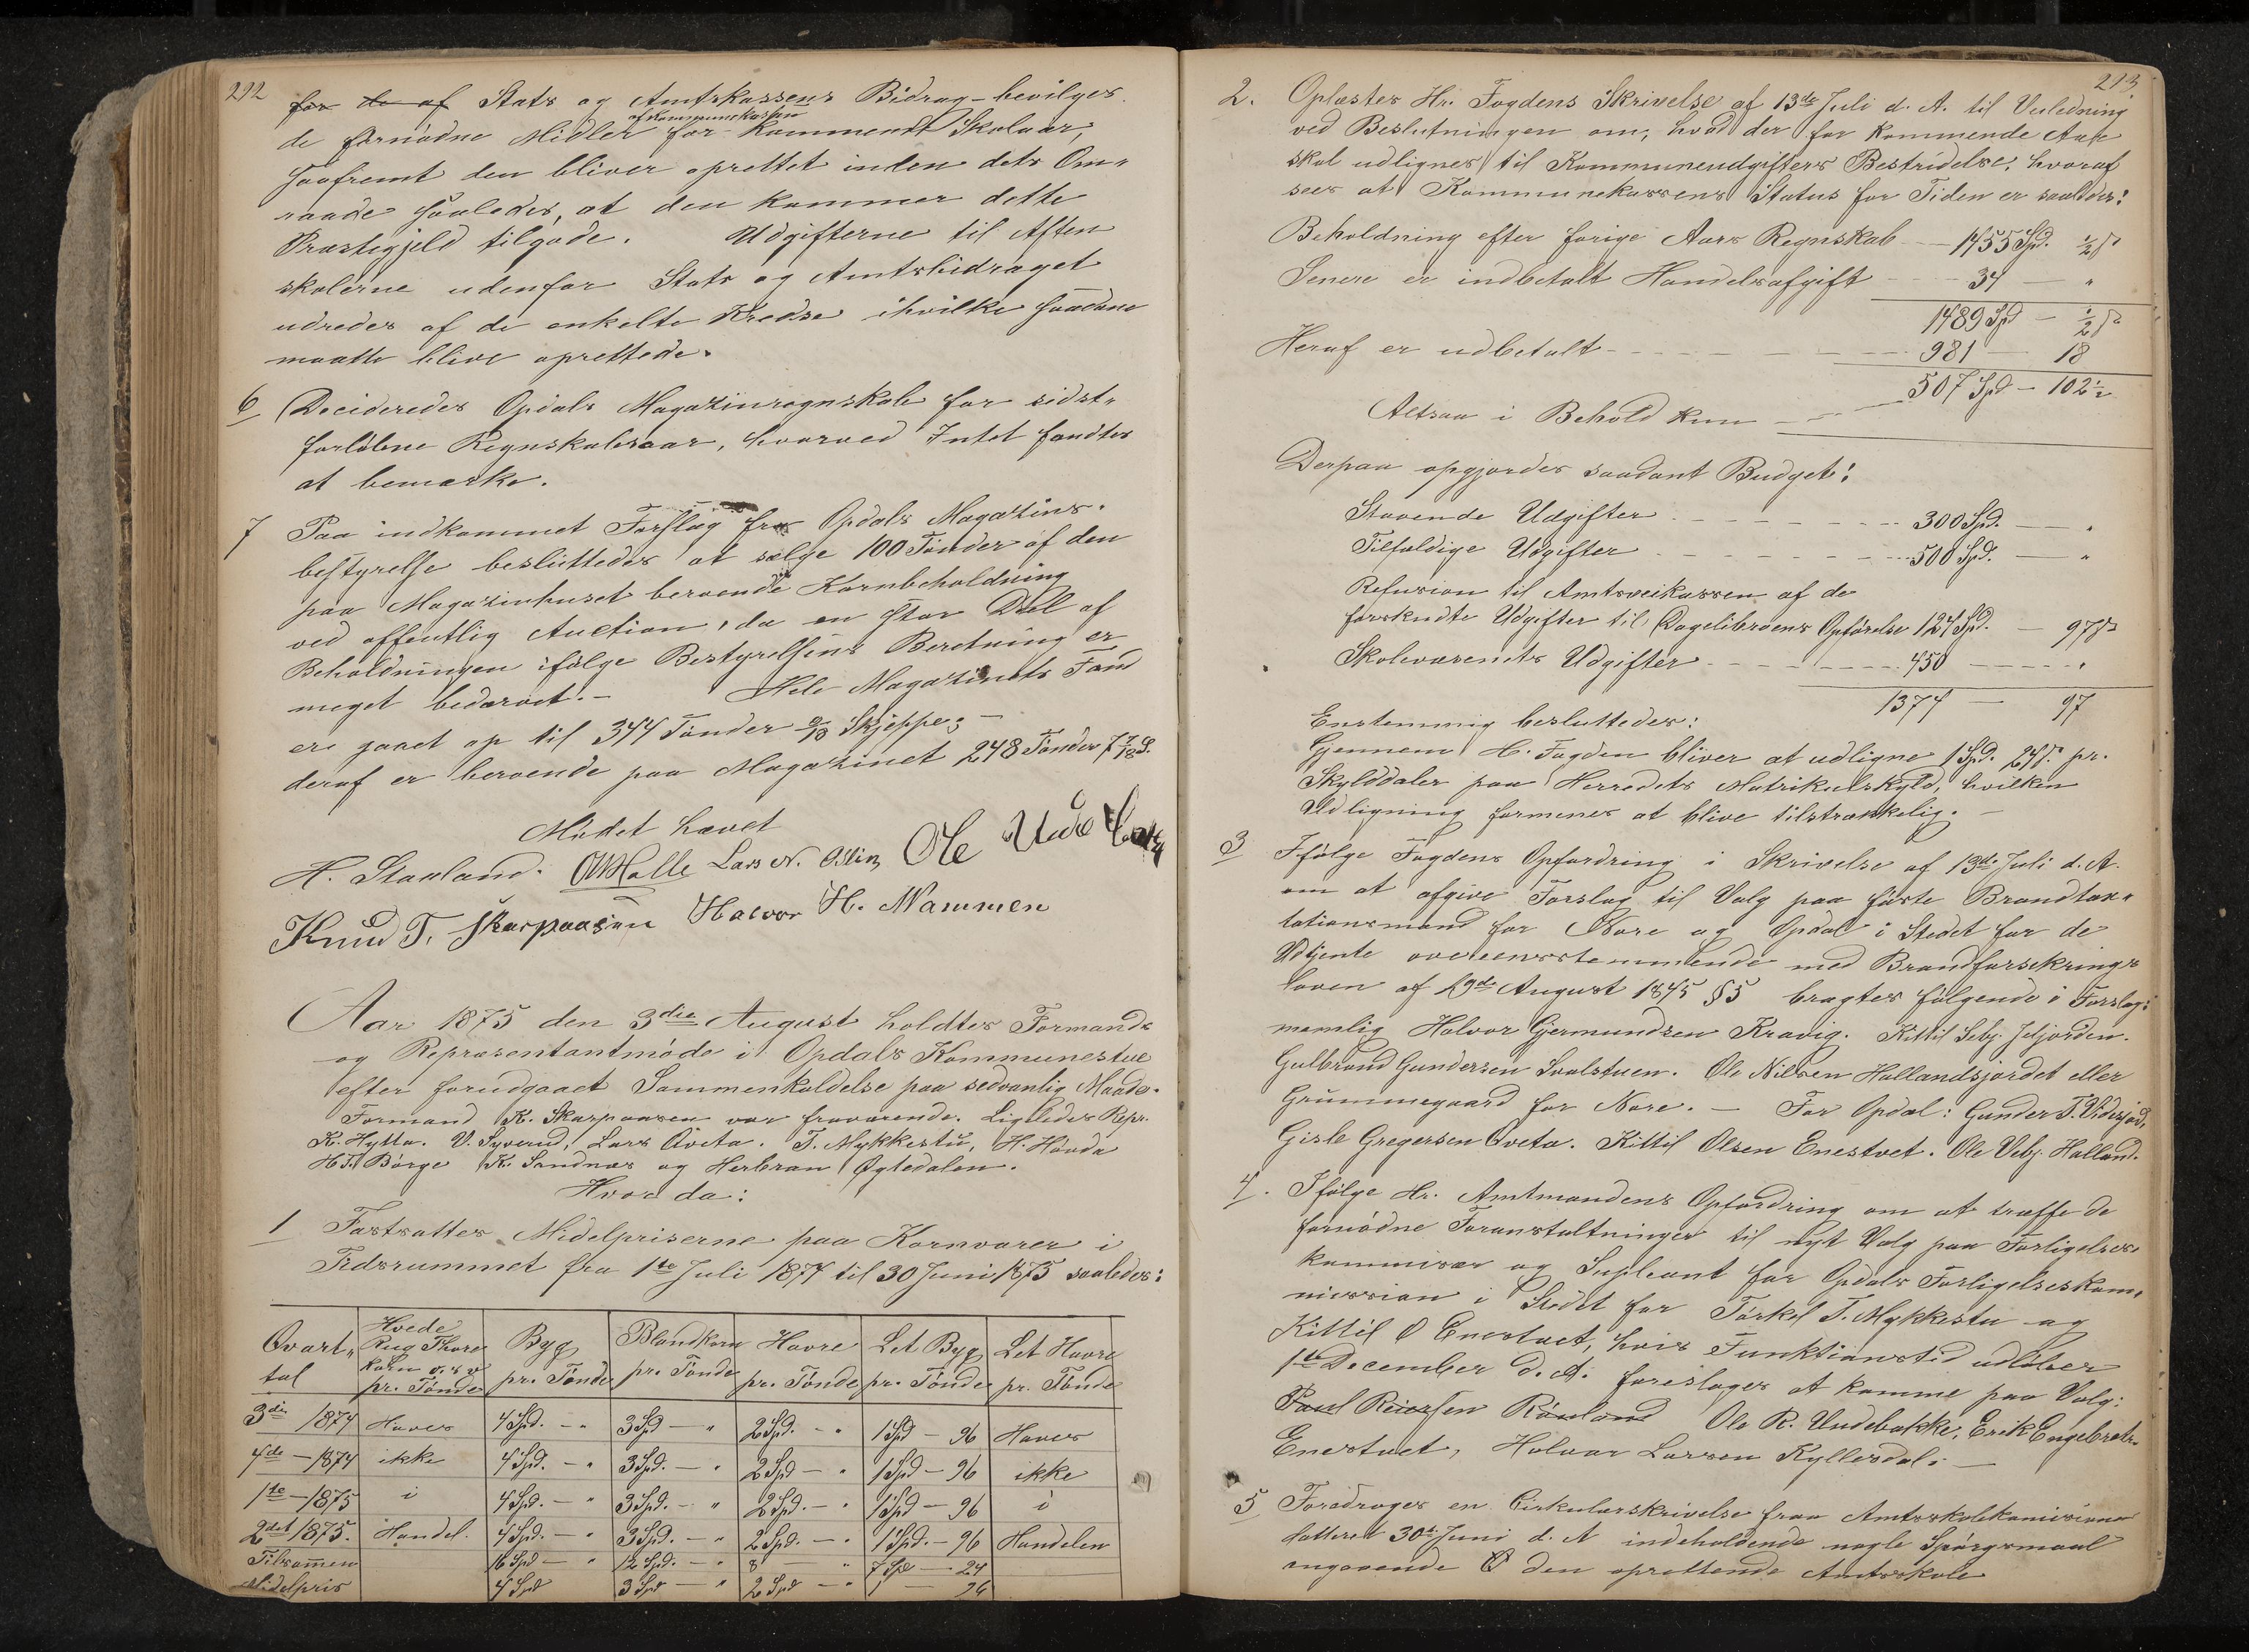 212
for de af Stats og Amtskassens Bidrag - bevilges
af Kommunekassen
de fornødne Midler for kommende Skoleaar,
saafremt den bliver oprettet inden dets Om-
raade saaledes, at den kommer dette
Præstegjeld tilgode. Udgifterne til Aften
skolerne udenfor Stats og Amtsbidraget
udredes af de enkelte Kredse ihvilke saadane
maatte blive oprettede.
6 Decideredes Opdals Magazinregnskab for sidst-
forløbne Regnskabsaar, hvorved Intet fandtes
at bemærke.
7 Paa indkommet Forslag fra Opdals Magazins-
bestyrelse besluttedes at sælge 100 Tønder af den
paa Magazinhuset beroende Kornbeholdning
ved offentlig Auction, da en stor Deel af
Beholdningen ifølge Bestyrelsens Beretning er
meget bedærvet. - Hele Magazinets Fond
er gaaet op til 344 Tønder 9/18 Skjeppe; -
deraf er beroende paa Magazinet 248 Tønder 7 7/18 S.
Mødet hævet
H. Staaland. OMHalle Lars N. Ødlin Ole Undebakke
Knud T. Skarpaasen Halvor H. Nammen
Aar 1875 den 3die August holdtes Formands
og Repræsentantmøde i Opdals Kommunestue
efter forudgaaet Sammenkaldelse paa sedvanlig Maade.
Formand K. Skarpaasen var fraværende. Ligeledes Repr.
K. Hytta. U. Syverud, Lars Qveta. T. Mykkestu, H. Hønda
H. T. Børge K. Sandnæs og Herbran Øgtedalen.
Hvor da:
1 Fastsattes Midelpriserne paa Kornvarer i
Tidsrummet fra 1te Juli 1874 til 30 Juni 1875 saaledes:
Qvart- tal Hvede Rug Thore korn o. s. v. pr. Tønde Byg pr. Tønde Blandkorn pr. Tønde Havre pr. Tønde Let Byg pr. Tønde Let Havre pr. Tønde
3die 1874 Haves 4 Spd. - " 3 Spd - " 2 Spd. - " 1 Spd - 96 Haves
4de - 1874 ikke 4 Spd. - " 3 Spd. - " 2 Spd - " 1 Spd - 96 ikke
1te - 1875 i 4 Spd. - " 3 Spd. - " 2 Spd. - " 1 Spd - 96 i
2det 1875. Handel. 4 Spd. - " 3 Spd. - " 2 Spd. - " 1 Spd. - 96 Handelen
Tilsammen 16 Spd - " 12 Spd. - " 8 - " 7 Spd - 24
Midelpris 4 Spd 3 Spd - " 2 Spd - " 1 - 96
213
2. Oplæstes Hr. Fogdens Skrivelse af 13de Juli d. A. til Veiledning
ved Beslutningen om, hvad der for kommende Aar
skal udlignes til Kommuneudgifters Bestridelse, hvoraf
sees at Kommunekassens Status for Tiden er saaledes:
Beholdning efter forige Aars Regnskab - 1455 Spd. ½ s
Senere er indbetalt Handelsafgift - 34 - "
1489 Spd - ½ s
Heraf er udbetalt - 981 - 18
Altsaa i Behold kun - 507 Spd - 102½
Derpaa opgjordes saadant Budget:
Staaende Udgifter - 300 Spd. - "
Tilfældige Udgifter - 500 Spd. - "
Refusion til Amtsveikassen af de
forskudte Udgifter til Dagelibroens Opførelse 124 Spd. - 97 s
Skolevæsenets Udgifter - 450 - "
1374 - 97
Enstemmig besluttedes:
Gjennem H. Fogden bliver at udligne 1 Spd. 24 s. pr.
Skylddaler paa Herredets Matrikulskyld, hvilken
Udligning formenes at blive tilstrækkelig. -
3 Ifølge Fogdens Opfordring i Skrivelse af 13de Juli d. A.
om at afgive Forslag til Valg paa første Brandtax-
tationsmand for Nore og Opdal i Stedet for de
Udtjente overeensstemmende med Brandforsikrings
loven af 19de August 1845 § 5 bragtes følgende i Forslag:
nemlig Halvor Gjermundsen Kravig. Kittil Sebj. Jeljorden.
Gulbrand Gundersen Svalstuen. Ole Nilsen Hallandsjordet eller
Grümmegaard for Nore. - For Opdal: Gunder T. Vidersjod,
Gisle Gregersen Qveta. Kittil Olsen Enestvet. Ole Vebj. Halland.
4. Ifølge Hr. Amtmandens Opfordring om at træffe de
fornødne Foranstaltninger til nyt Valg paa Forligelses-
kommisær og Supleant for Opdals Forligelseskom-
mission i Stedet for Torkel T. Mykkestu og
Kittil O Enestvet, hvis Funktionstid udløber
1te December d. A. foreslages at komme paa Valg:
Paul Reiersen Rauland Ole R. Undebakke, Erik Engebrets.
Enestvet, Halvor Larsen Kyllesdal. -
5 Foredrages en Cirkulærskrivelse fraa Amtsskolekomisionen
datteret 30te Juni d. A indeholdende nogle Spørgsmaal
angaaende den oprettende Amtsskole